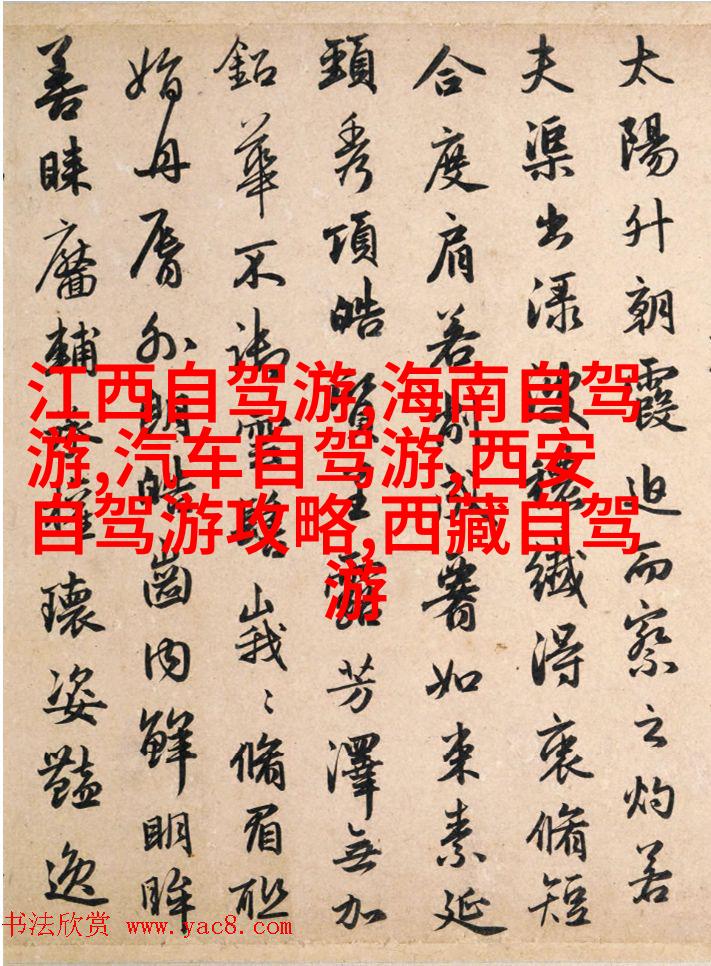 太陽升朝霞迫而察之灼若
夫渠出渌波穠纖得衷脩短
合度肩若削成如束素延
頸秀項皓質呈露芳澤無加
鉛華不御雲髻峩〻脩眉聮
娟丹脣外朗皓齒内鮮明眸
善睞靨輔承權瓌姿豔逸
江西自驾游,海南自驾
游,汽车自驾游,西安
自驾游攻略,西藏自驾
游
书法欣赏 www.yac8.com